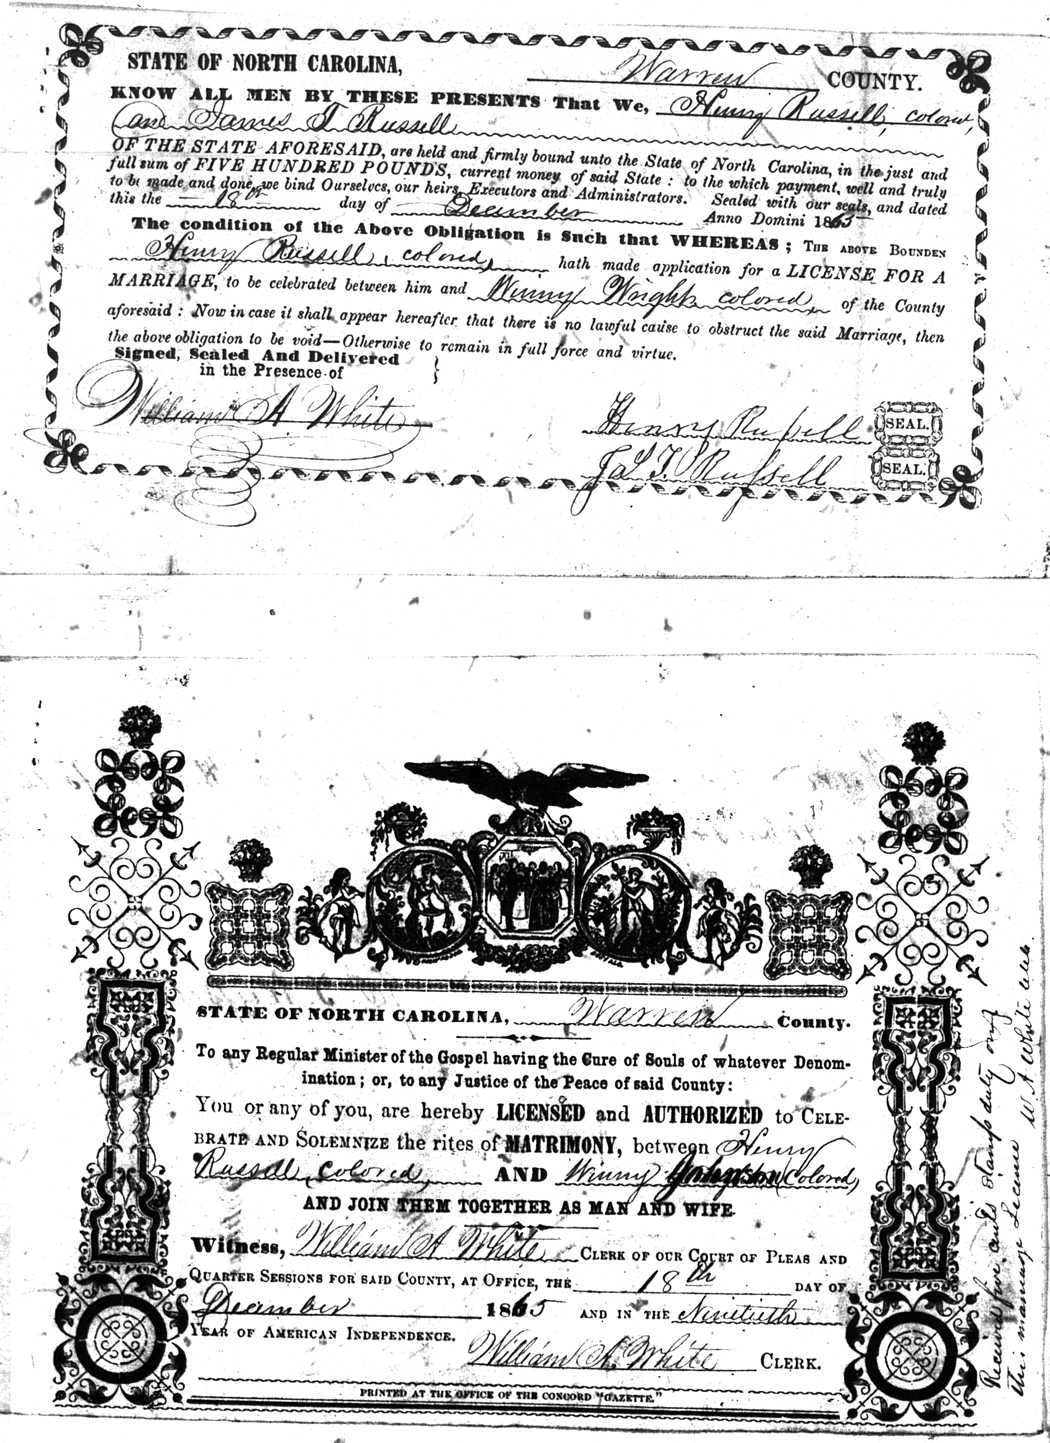 STATE OF NORTH CAROLINA, Warren COUNTY.
KNOW ALL MEN BY THESE PRESENTS That We, Henry Russell, colored,
and James T Russell
OF THE STATE AFORESAID, are held and firmly bound unto the State of North Carolina, in the just and
full sum of FIVE HUNDRED POUNDS, current money of said State: to the which payment, well and truly
to be made and done, we bind Ourselves, our heirs, Executors and Administrators. Sealed with our seals, and dated
this the 18th day of December Anno Domini 1865
The condition of the Above Obligation is Such that WHEREAS; THE ABOVE BOUNDEN
Henry Russell, colored, hath made application for a LICENSE FOR A
MARRIAGE, to be celebrated between him and Winny Wright colored, of the County
aforesaid: Now in case it shall appear hereafter that there is no lawful cause to obstruct the said Marriage, then
the above obligation to be void—Otherwise to remain in full force and virtue.
Signed, Sealed And Delivered
in the Presence of
William A White
Henry Russell SEAL.
Jas T Russell SEAL.
STATE OF NORTH CAROLINA, Warren County.
To any Regular Minister of the Gospel having the Cure of Souls of whatever Denom-
ination; or, to any Justice of the Peace of said County:
You or any of you, are hereby LICENSED and AUTHORIZED to CELE-
BRATE AND SOLEMNIZE the rites of MATRIMONY, between Henry
Russell, colored, AND Winny (colored,)
AND JOIN THEM TOGETHER AS MAN AND WIFE.
Witness, William A White CLERK OF OUR COURT OF PLEAS AND
QUARTER SESSIONS FOR SAID COUNTY, AT OFFICE, THE 18th DAY OF
December 1865 AND IN THE Ninetieth
YEAR OF AMERICAN INDEPENDENCE.
William A. White CLERK.
PRINTED AT THE OFFICE OF THE CONCORD "GAZETTE."
Received five cents stamp duty on
this marriage License W. A White